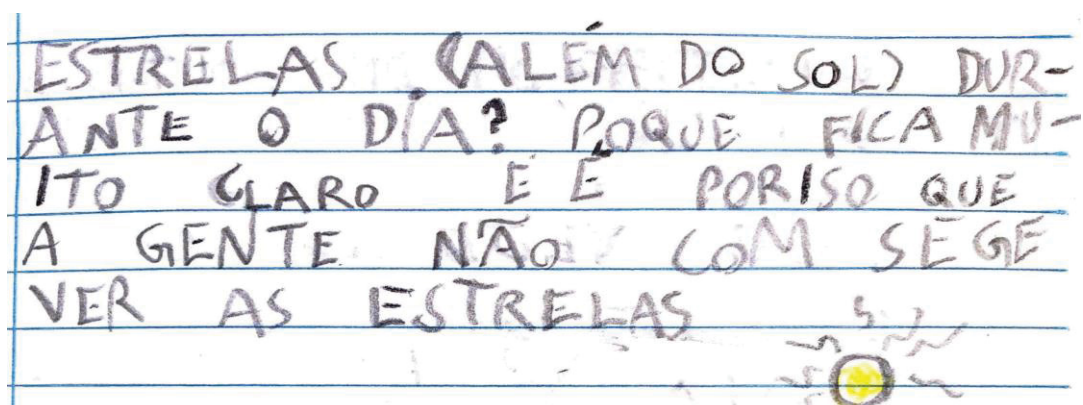 ESTRELAS (ALÉM DO SOL) DUR-
ANTE O DÍA? POQUE FICA MU-
ITO CLARO E É PORISO QUE
A GENTE NÃO COM SEGE
VER AS ESTRELAS